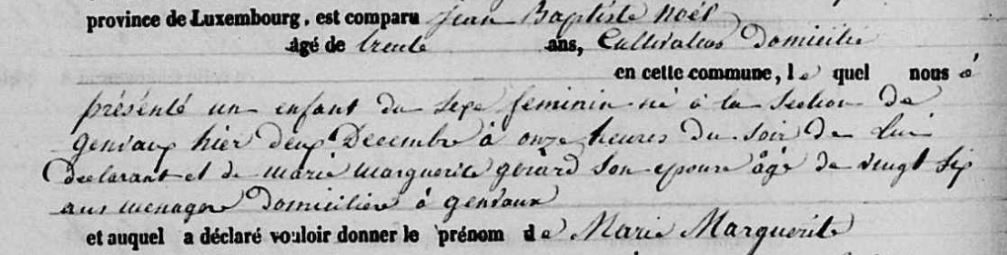 province de Luxembourg, est comparu jean Baptiste Noël
âgé de trente ans, Cultivateur Domicilié
en cette commune, le quel nous a
présenté un enfant du sexe feminin né à la Section De
genvaux hier deux Decembre à onze heures Du Soir De Lui
Declarant et de marie marguerite gérard son epouse âgé De vingt six
ans menagere Domiciliée à genvaux
et auquel a déclaré vouloir donner le prénom de Marie Marguerite